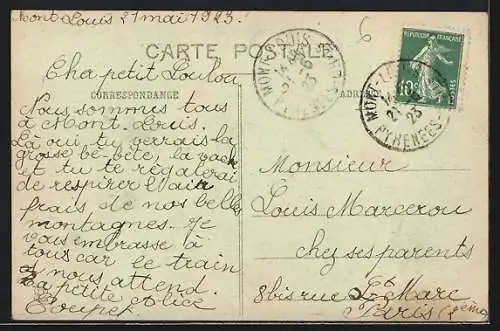 Mont Louis 21 mai 1923.
6
CARTE POSTALE
Cha petit Loulou
CORRESPONDANCE
Nous sommes tous
à Mont-Louis.
Là où tu verrais la
grosse bê-bête, la vach
et tu te régalerai
de respirer l'air
frais de nos belles
montagnes. Je
vous embrasse à
tous car le train
nous attend.
La petite
MONT-LOUIS
PYRENEES
REPUBLIQUE FRANÇAISE
10c
POSTES
MONT-LOUIS
23
PYRENEES
Monsieur
Louis Marcerou
chez ses parents
8 bis rue St Marc
Paris